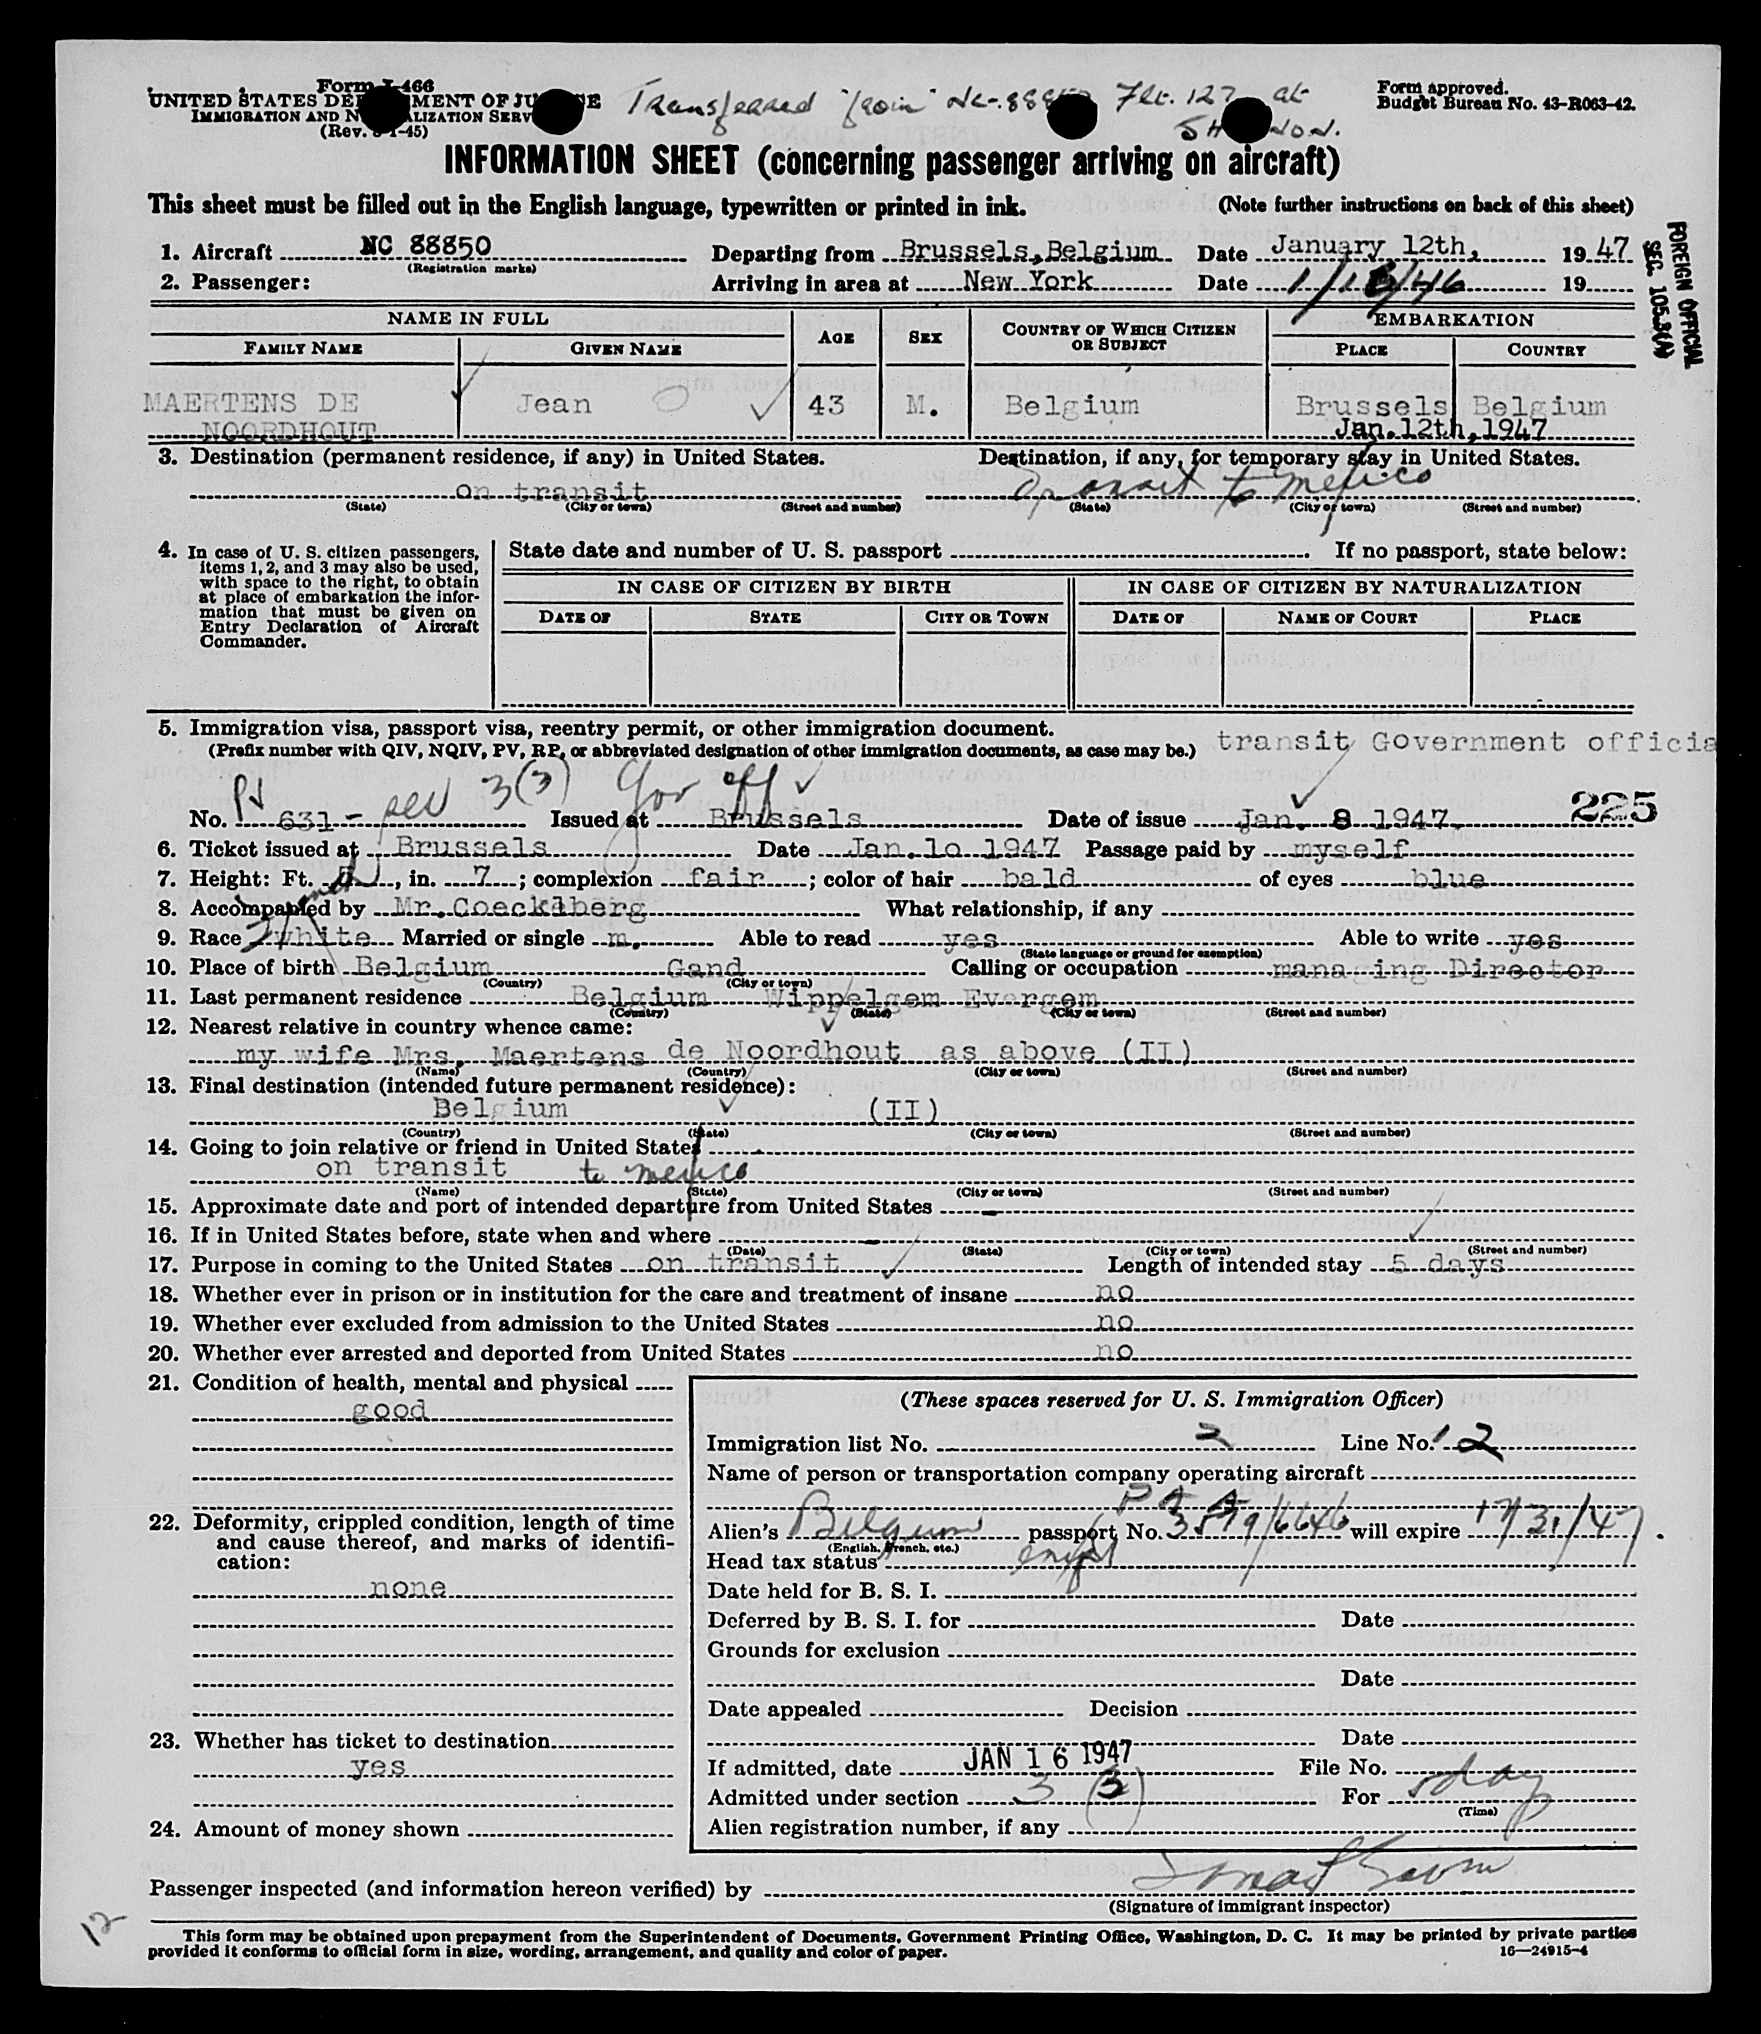 Form I-466
UNITED STATES DE MENT OF JU E
IMMIGRATION AND N ALIZATION SERV
(Rev. -45)
Transferred from Flt. 127 at
SH NON.
Form approved.
Budget Bureau No. 43-R063-42.
INFORMATION SHEET (concerning passenger arriving on aircraft)
This sheet must be filled out in the English language, typewritten or printed in ink. (Note further instructions on back of this sheet)
FOREIGN OFFICIAL
SEC. 105.3(A)
1. Aircraft NC 88850 Departing from Brussels,Belgium Date January 12th, 1947
(Registration marks)
2. Passenger: Arriving in area at New York Date 19
NAME IN FULL AGE SEX COUNTRY OF WHICH CITIZEN OR SUBJECT EMBARKATION
FAMILY NAME GIVEN NAME PLACE COUNTRY
MAERTENS DE Jean 43 M. Belgium Brussels Belgium
NOORDHOUT Jan.12th,1947
3. Destination (permanent residence, if any) in United States. Destination, if any, for temporary stay in United States.
on transit transit to Mexico
(State) (City or town) (Street and number) (State) (City or town) (Street and number)
4. In case of U. S. citizen passengers, items 1, 2, and 3 may also be used, with space to the right, to obtain at place of embarkation the information that must be given on Entry Declaration of Aircraft Commander.
State date and number of U. S. passport . If no passport, state below:
IN CASE OF CITIZEN BY BIRTH IN CASE OF CITIZEN BY NATURALIZATION
DATE OF STATE CITY OR TOWN DATE OF NAME OF COURT PLACE
5. Immigration visa, passport visa, reentry permit, or other immigration document.
(Prefix number with QIV, NQIV, PV, RP, or abbreviated designation of other immigration documents, as case may be.) transit Government officia
PV sec 3(3) Gov off
225
No. 631 - Issued at Brussels Date of issue Jan. 8 1947.
6. Ticket issued at Brussels Date Jan.10 1947 Passage paid by myself
7. Height: Ft. 5, in. 7; complexion fair; color of hair bald of eyes blue
8. Accompanied by Mr.Coeckelberg What relationship, if any
9. Race white Married or single m. Able to read yes Able to write yes
(State language or ground for exemption)
10. Place of birth Belgium Gand Calling or occupation managing Director
(Country) (City or town)
11. Last permanent residence Belgium Wippelgem Evergem
(Country) (State) (City or town) (Street and number)
12. Nearest relative in country whence came:
my wife Mrs. Maertens de Noordhout as above (II)
(Name) (Country) (City or town) (Street and number)
13. Final destination (intended future permanent residence):
Belgium (II)
(Country) (State) (City or town) (Street and number)
14. Going to join relative or friend in United States
on transit to mexico
(Name) (State) (City or town) (Street and number)
15. Approximate date and port of intended departure from United States
16. If in United States before, state when and where
(Date) (State) (City or town) (Street and number)
17. Purpose in coming to the United States on transit Length of intended stay 5 days
18. Whether ever in prison or in institution for the care and treatment of insane no
19. Whether ever excluded from admission to the United States no
20. Whether ever arrested and deported from United States no
21. Condition of health, mental and physical
good
22. Deformity, crippled condition, length of time and cause thereof, and marks of identification:
none
23. Whether has ticket to destination
yes
24. Amount of money shown
(These spaces reserved for U. S. Immigration Officer)
Immigration list No. 2 Line No. 2
Name of person or transportation company operating aircraft
P A A
Alien's Belgium passport No. will expire
(English, French, etc.)
Head tax status
Date held for B. S. I.
Deferred by B. S. I. for Date
Grounds for exclusion
Date
Date appealed Decision
Date
If admitted, date JAN 16 1947 File No.
Admitted under section 3 (3) For 5 day
(Time)
Alien registration number, if any
Passenger inspected (and information hereon verified) by
(Signature of immigrant inspector)
12
This form may be obtained upon prepayment from the Superintendent of Documents, Government Printing Office, Washington, D. C. It may be printed by private parties
provided it conforms to official form in size, wording, arrangement, and quality and color of paper. 16—24915-4